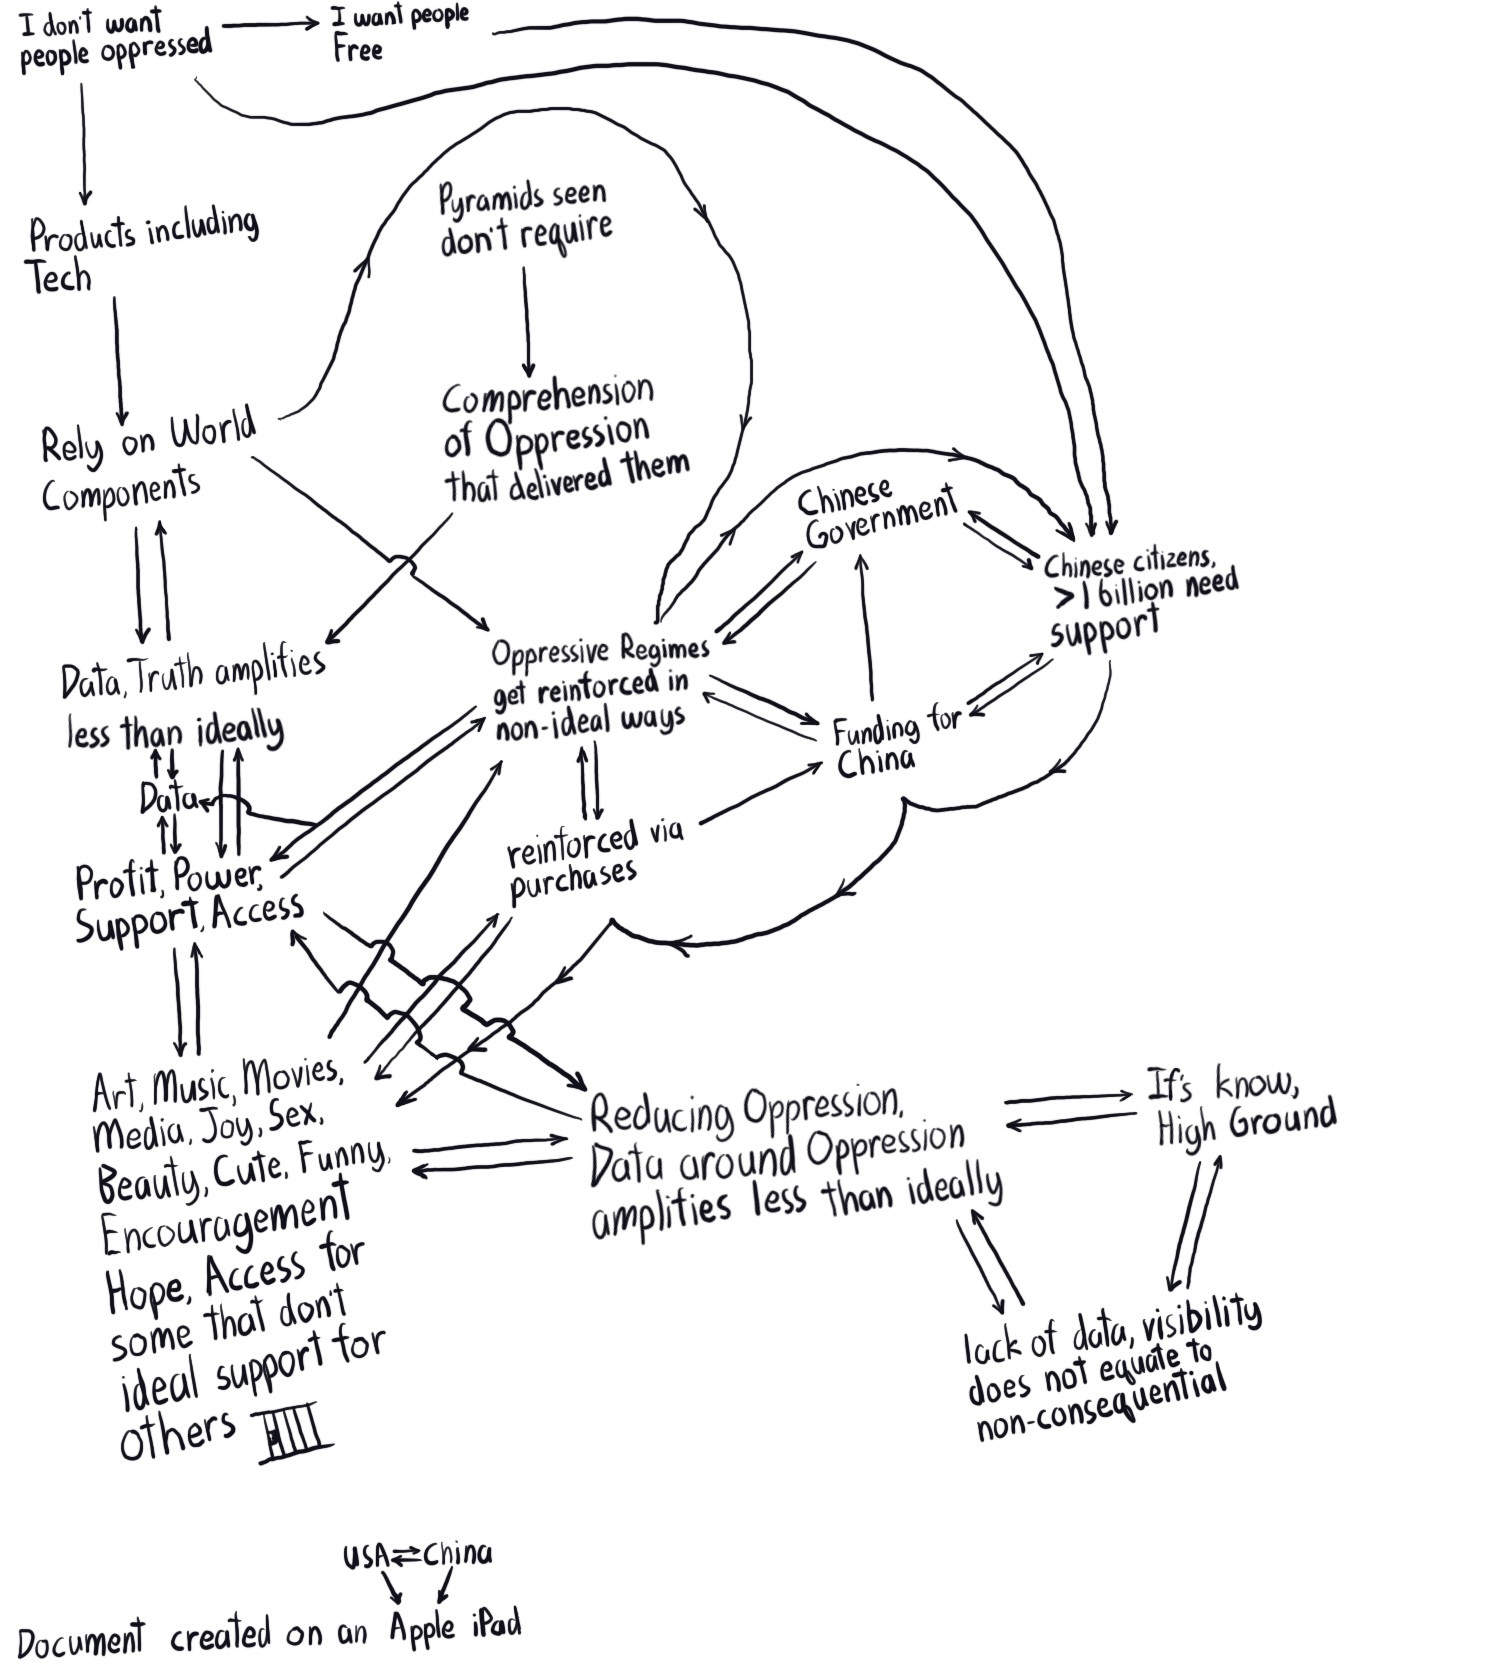 I don't want
people oppressed
I want people
Free
Products including
Tech
Pyramids seen
don't require
Rely on World
Components
Comprehension
of Oppression
that delivered them
Chinese
Government
Chinese citizens,
>1 billion need
support
Data, Truth amplifies
less than ideally
Oppressive Regimes
get reinforced in
non-ideal ways
Funding for
China
Data
Profit, Power,
Support, Access
reinforced via
purchases
Art, Music, Movies,
Media, Joy, Sex,
Beauty, Cute, Funny,
Encouragement
Hope, Access for
some that don't
ideal support for
others
Reducing Oppression,
Data around Oppression
amplifies less than ideally
If's know,
High Ground
lack of data, visibility
does not equate to
non-consequential
USA China
Document created on an Apple iPad